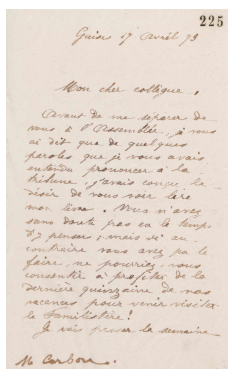 225
Guise 17 Avril 73
Mon cher collègue,
Avant de me séparer de
vous à l'Assemblée, je vous
ai dit que de quelques
paroles que je vous avais
entendu prononcer à la
tribune j'avais conçu le
désir de vous voir lire
mon livre. Vous n'avez
sans doute pas eu le temps
d'y penser; mais si au
contraire vous avez pu le
faire, ne pourriez-vous
consentir à profiter de la
dernière quinzaine de nos
vacances pour venir visiter
le Familistère!
Je vais passer la semaine
M Corbon.